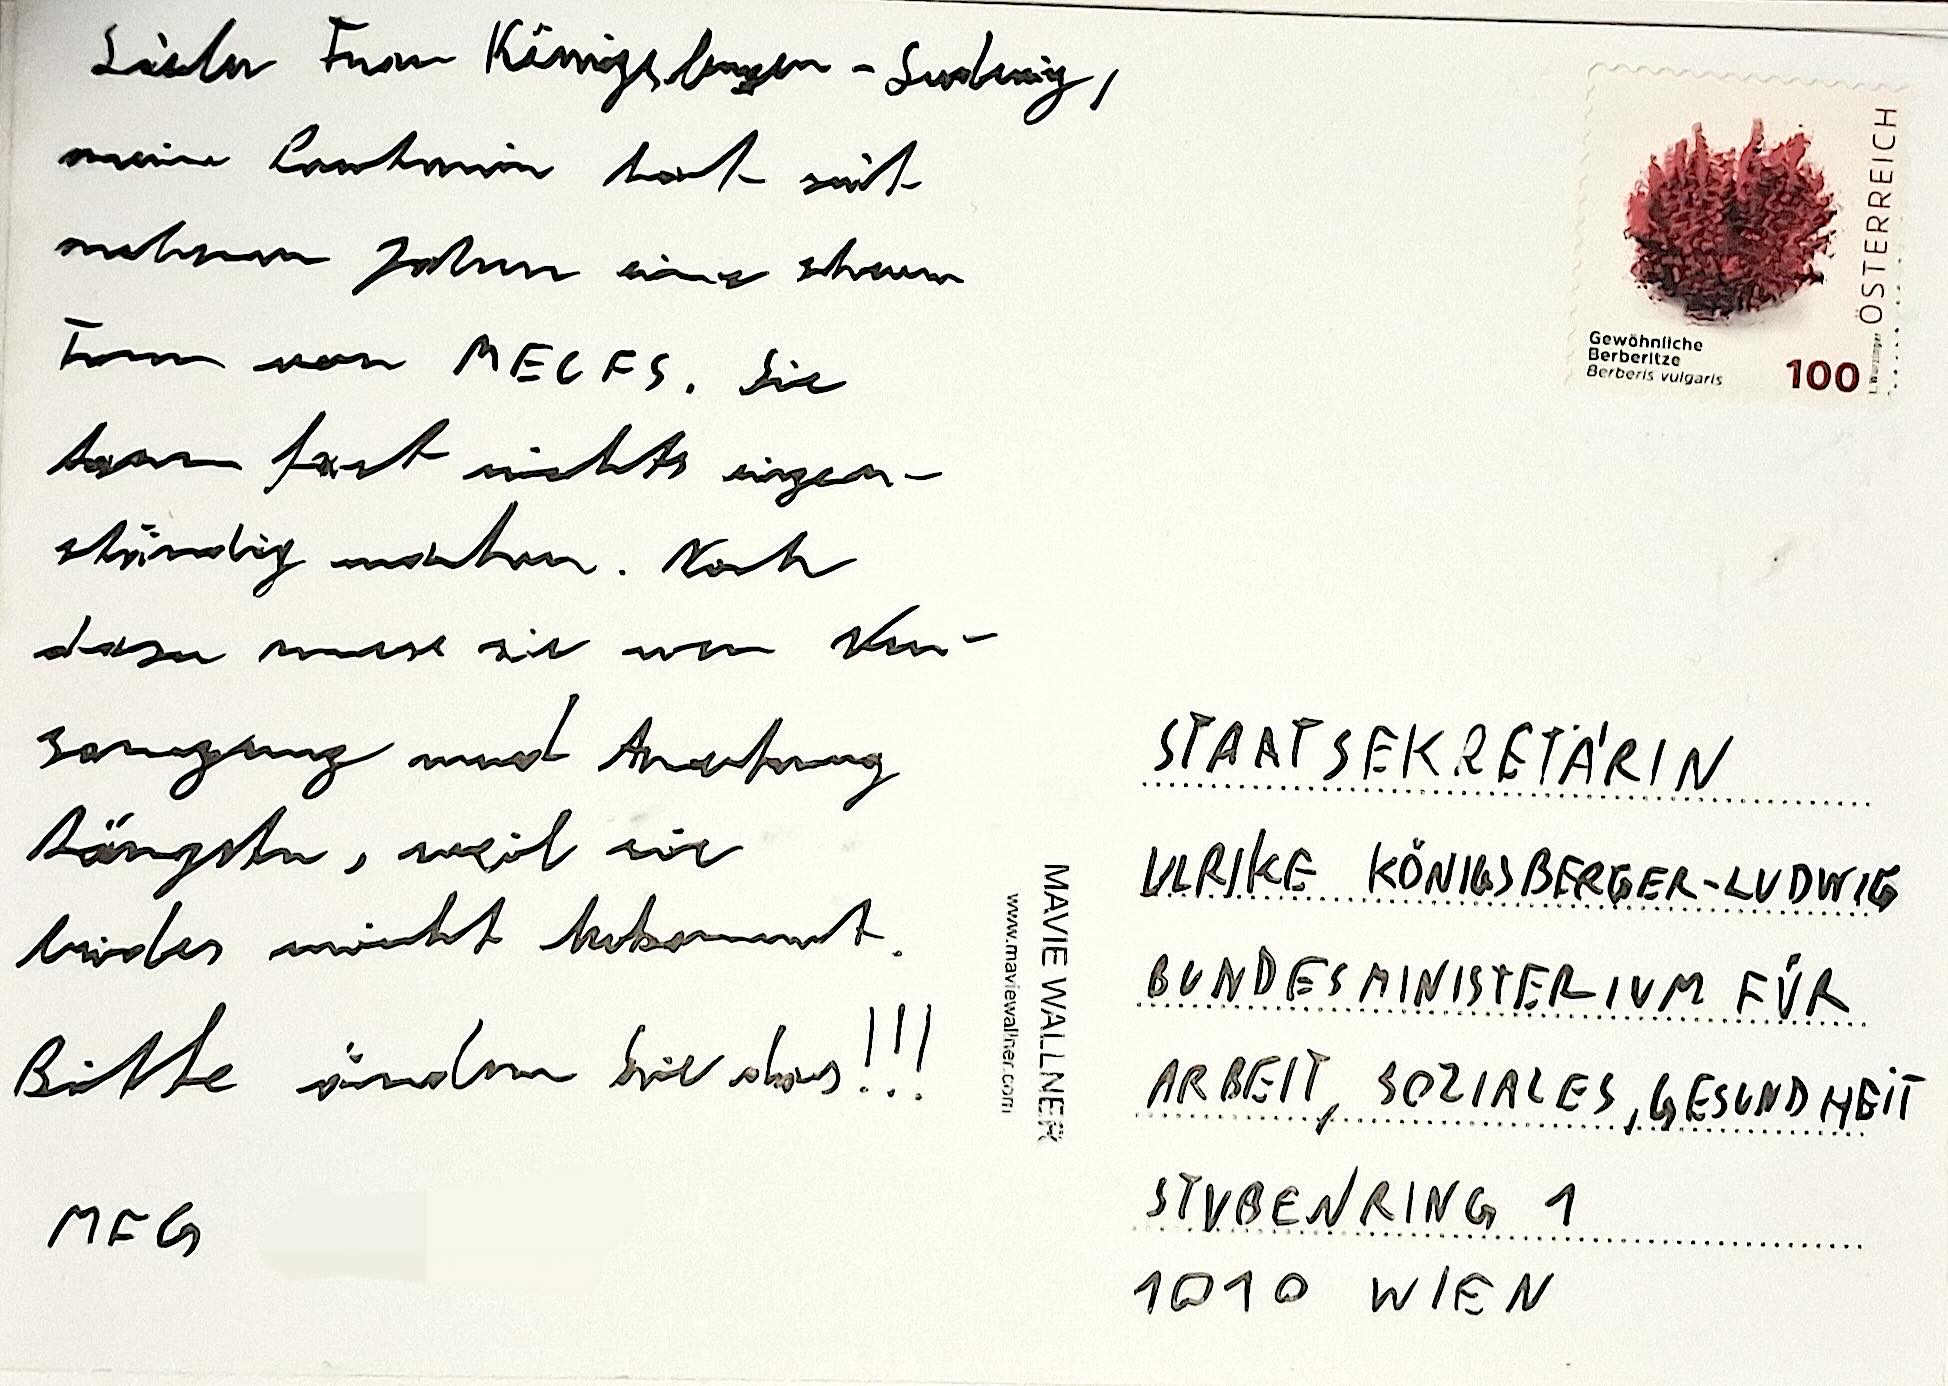 Liebe Frau Königsberger-Ludwig,
meine Cousine hat seit
mehreren Jahren eine schwere
Form von MECFS. Sie
kann fast nichts eigen-
ständig machen. Noch
dazu muss sie um Ver-
sorgung und Anerkennung
kämpfen, weil sie
beides nicht bekommt.
Bitte ändern Sie das!!!
MFG
ÖSTERREICH
Gewöhnliche
Berberitze
Berberis vulgaris
100
MAVIE WALLNER
www.maviewallner.com
STAATSEKRETÄRIN
ULRIKE KÖNIGSBERGER-LUDWIG
BUNDESMINISTERIUM FÜR
ARBEIT, SOZIALES, GESUNDHEIT
STUBENRING 1
1010 WIEN